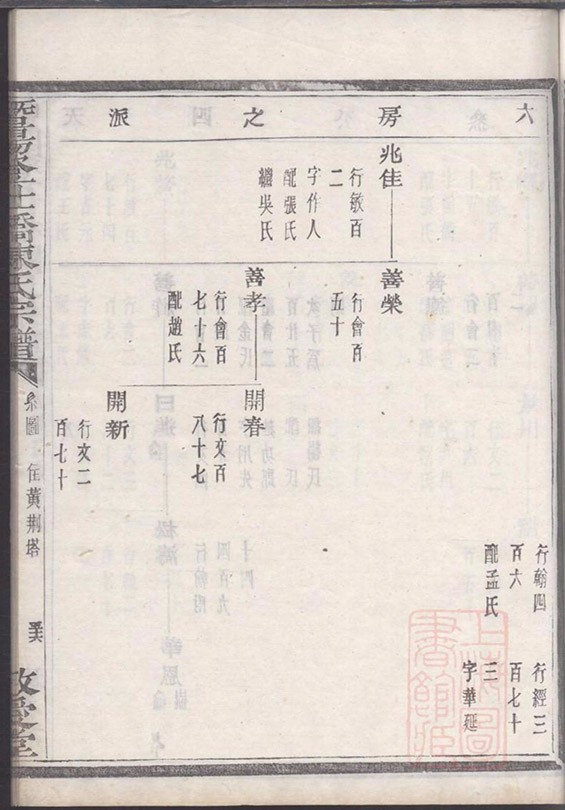 六房之派
行翰四
百六
配孟氏
行經三
百七十
三
字華延
兆佳
行敏百
二
字作人
配張氏
繼吳氏
善榮
行會百
五十
善孝
行會百
七十六
配趙氏
開春
行文百
八十七
開新
行文二
百七十
暨陽金土橋陳氏宗譜
系圖
住黃荆塔
敬愛堂
上海圖書館藏